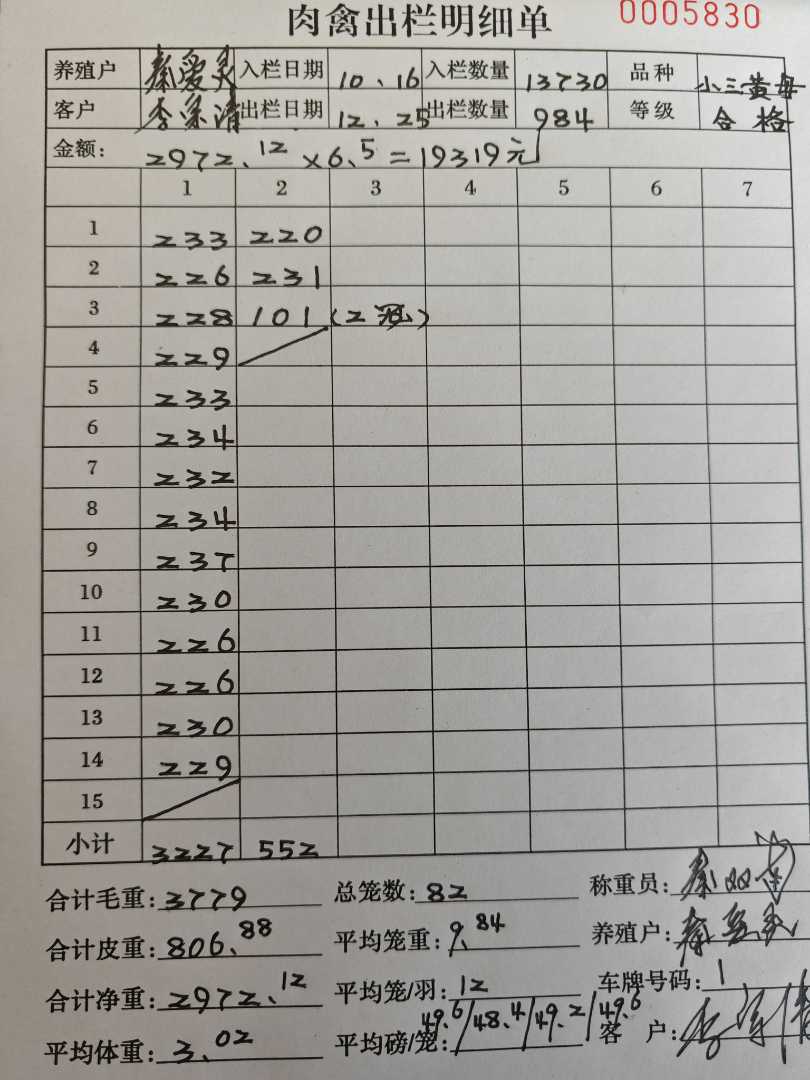 肉禽出栏明细单 0005830
养殖户 秦爱灵 入栏日期 10、16 入栏数量 13730 品种 小三黄母
客户 李 清 出栏日期 12、25 出栏数量 984 等级 合格
金额: 2972.12×6.5=19319元
1 2 3 4 5 6 7
1 233 220
2 226 231
3 228 101(2 )
4 229
5 233
6 234
7 232
8 234
9 237
10 230
11 226
12 226
13 230
14 229
15
小计 3227 552
合计毛重: 3779 总笼数: 82 称重员: 秦
合计皮重: 806.88 平均笼重: 9.84 养殖户: 秦爱灵
合计净重: 2972.12 平均笼/羽: 12 车牌号码: 1
平均体重: 3.02 平均磅/笼: 49.6/48.4/49.2/49.6 客户: 李 清